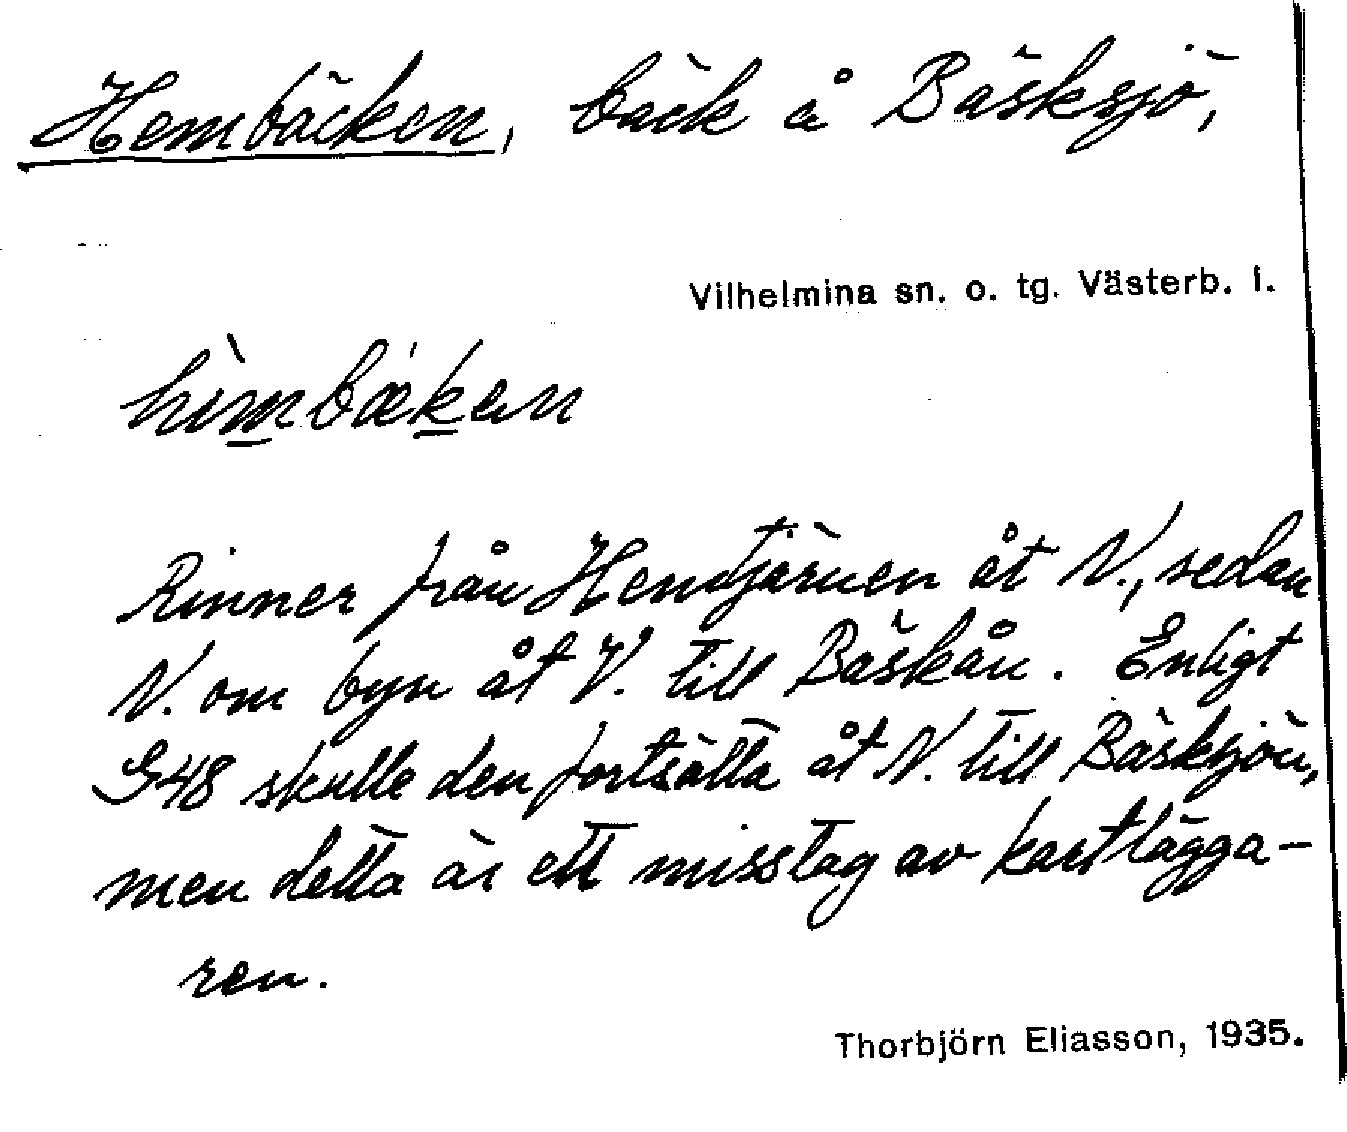 Hembäcken, bäck å Bäsksjö,
Vilhelmina sn. o. tg. Västerb. l.
hìmbækan
Rinner från Hemtjärnen åt N., sedan
N. om byn åt V. till Bäskån. Enligt
G48 skulle den fortsätta åt N. till Bäsksjön,
men detta är ett misstag av kartlägga-
ren.
Thorbjörn Eliasson, 1935.